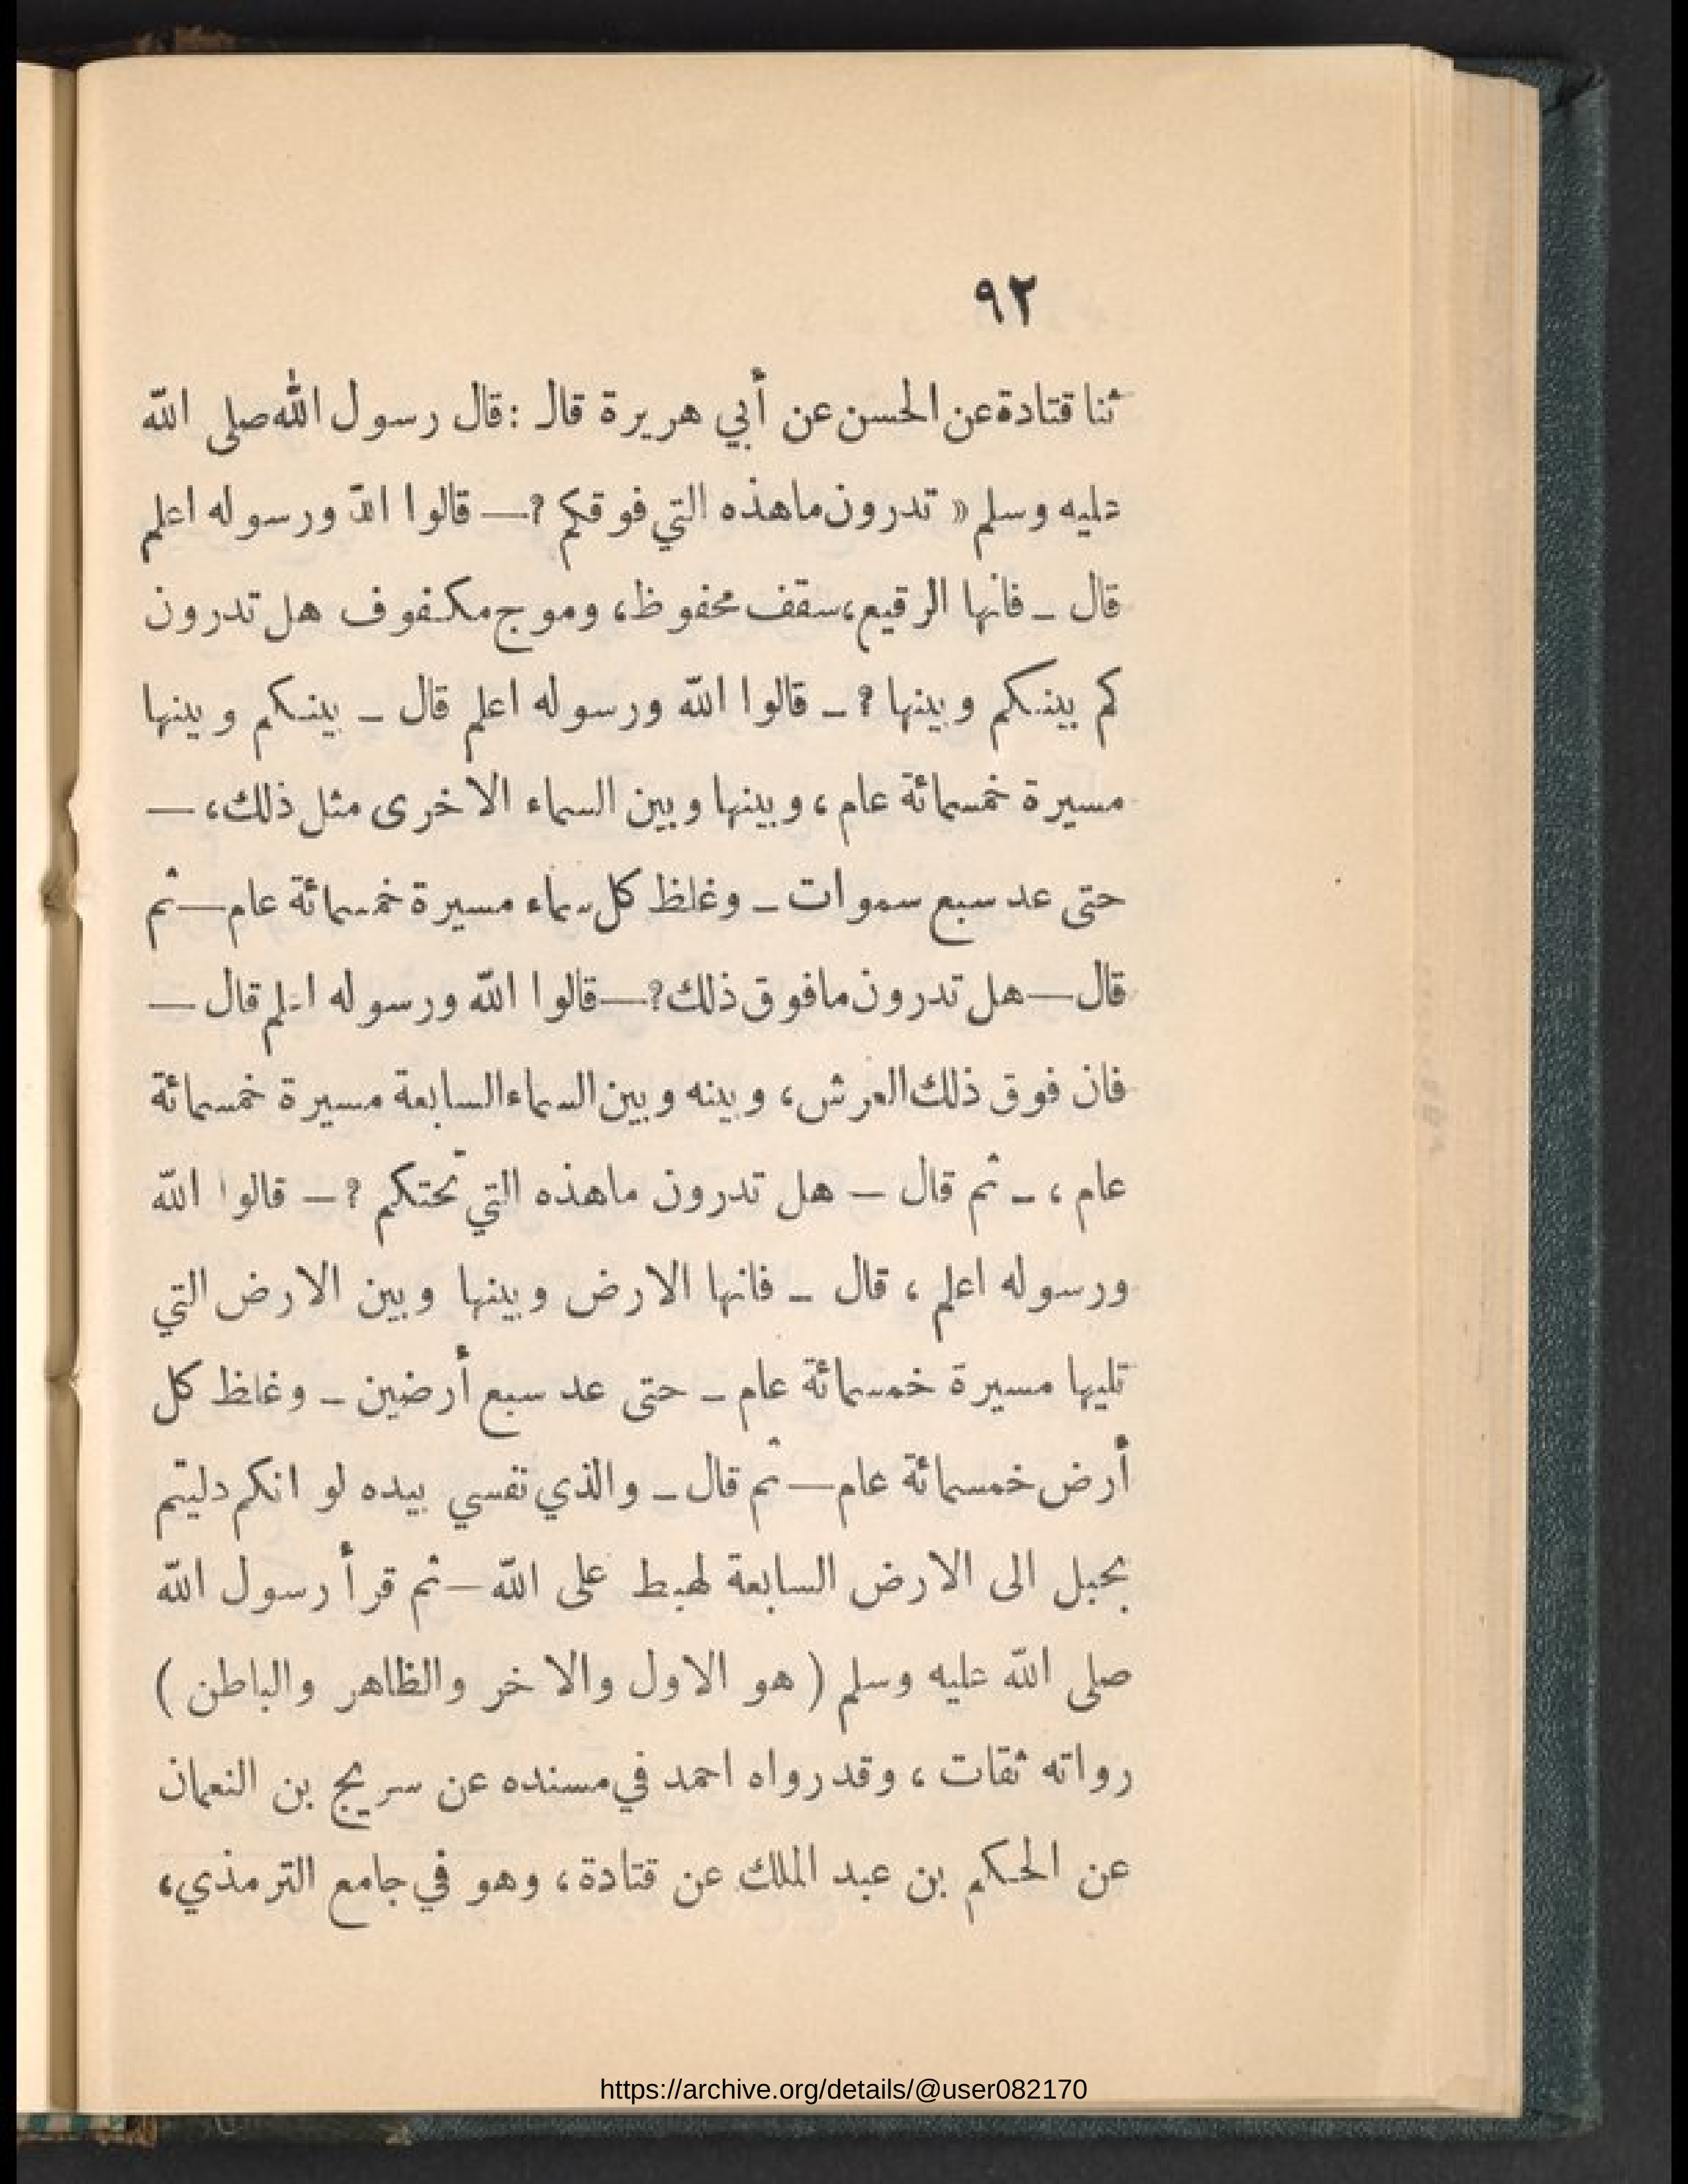 ٩٢
ثنا قتادة عن الحسن عن أبي هريرة قال : قال رسول الله صلى الله
عليه وسلم « تدرون ما هذه التي فوقكم ؟ — قالوا الله ورسوله اعلم
قال ـ فانها الرقيع، سقف محفوظ، وموج مكفوف هل تدرون
كم بينكم وبينها ؟ ـ قالوا الله ورسوله اعلم قال ـ بينكم وبينها
مسيرة خمسمائة عام ، وبينها وبين السماء الاخرى مثل ذلك، —
حتى عد سبع سموات ـ وغلظ كل سماء مسيرة خمسمائة عام — ثم
قال — هل تدرون ما فوق ذلك؟ — قالوا الله ورسوله اعلم قال —
فان فوق ذلك العرش، وبينه وبين السماء السابعة مسيرة خمسمائة
عام ، ـ ثم قال — هل تدرون ما هذه التي تحتكم ؟ — قالوا الله
ورسوله اعلم ، قال ـ فانها الارض وبينها وبين الارض التي
تليها مسيرة خمسمائة عام ـ حتى عد سبع أرضين ـ وغلظ كل
أرض خمسمائة عام — ثم قال ـ والذي نفسي بيده لو انكم دليتم
بحبل الى الارض السابعة لهبط على الله — ثم قرأ رسول الله
صلى الله عليه وسلم ( هو الاول والاخر والظاهر والباطن )
رواته ثقات ، وقد رواه احمد في مسنده عن سريج بن النعمان
عن الحكم بن عبد الملك عن قتادة ، وهو في جامع الترمذي،
https://archive.org/details/@user082170